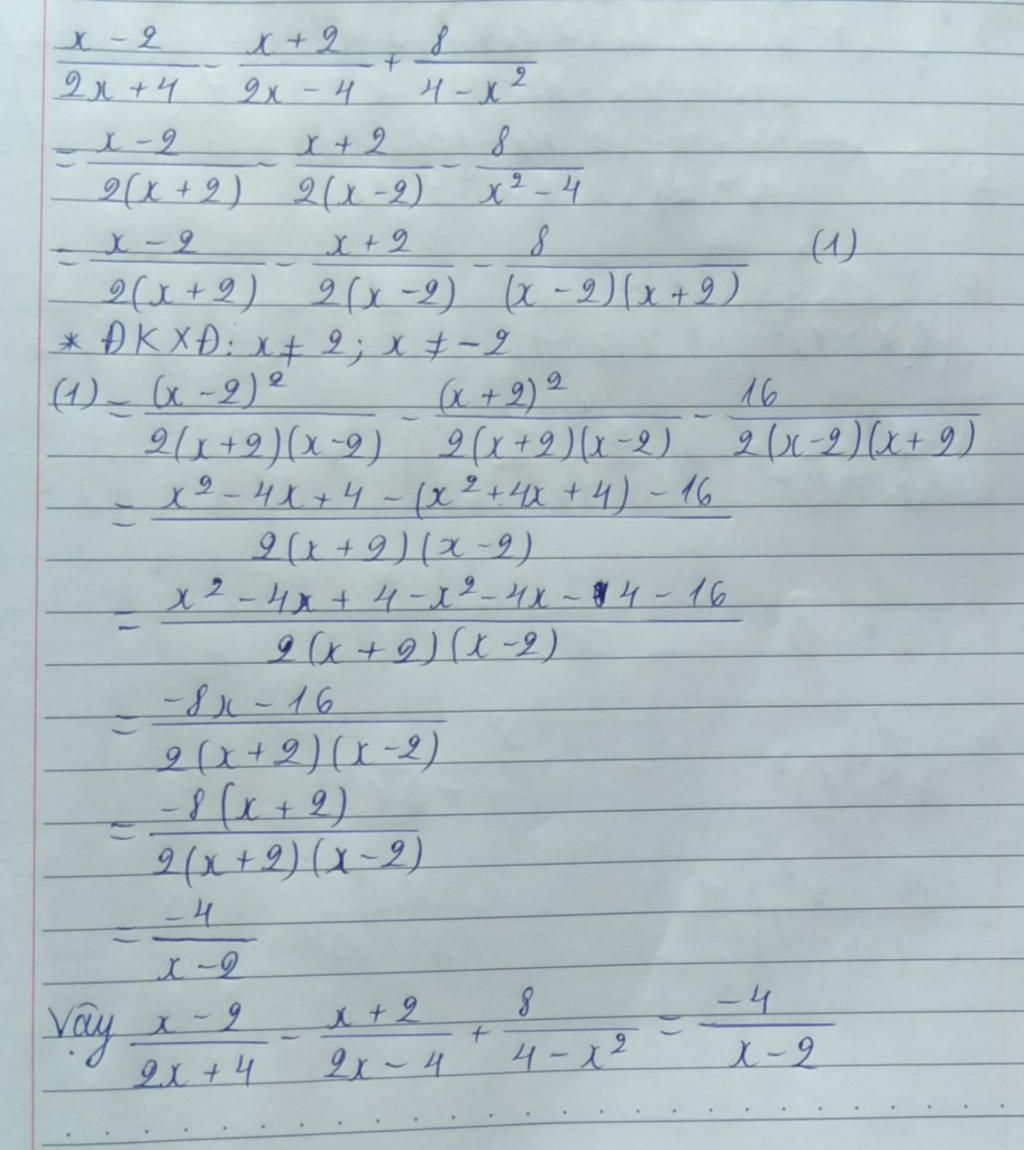 \frac{x-2}{2x+4} - \frac{x+2}{2x-4} + \frac{8}{4-x^2}
= \frac{x-2}{2(x+2)} - \frac{x+2}{2(x-2)} - \frac{8}{x^2-4}
= \frac{x-2}{2(x+2)} - \frac{x+2}{2(x-2)} - \frac{8}{(x-2)(x+2)} (1)
* ĐKXĐ: x ≠ 2; x ≠ -2
(1) = \frac{(x-2)^2}{2(x+2)(x-2)} - \frac{(x+2)^2}{2(x+2)(x-2)} - \frac{16}{2(x-2)(x+2)}
= \frac{x^2-4x+4-(x^2+4x+4)-16}{2(x+2)(x-2)}
= \frac{x^2-4x+4-x^2-4x-4-16}{2(x+2)(x-2)}
= \frac{-8x-16}{2(x+2)(x-2)}
= \frac{-8(x+2)}{2(x+2)(x-2)}
= \frac{-4}{x-2}
Vậy \frac{x-2}{2x+4} - \frac{x+2}{2x-4} + \frac{8}{4-x^2} = \frac{-4}{x-2}